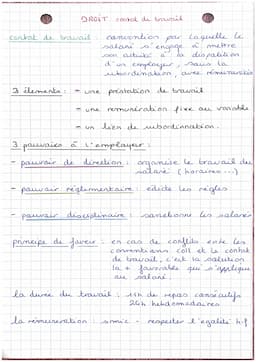 DROIT : contrat de travail
contrat de travail : convention par laquelle le
salarié s'engage à mettre
son activité à la disposition
d'un employeur, sous la
subordination, avec rémunération
3 éléments : - une prestation de travail
- une rémunération fixe ou variable
- un lien de subordination.
3 pouvoirs à l'employeur :
- pouvoir de direction : organise le travail du
salarié (horaires...)
- pouvoir réglementaire : édicte les règles
- pouvoir disciplinaire : sanctionne les salariés
principe de faveur : en cas de conflits entre les
conventions coll et le contrat
de travail, c'est la solution
la + favorable qui s'applique
au salarié.
la durée du travail : 11h de repos consécutifs
24h hebdomadaires
la rémunération : smic - respecter l'égalité h.f